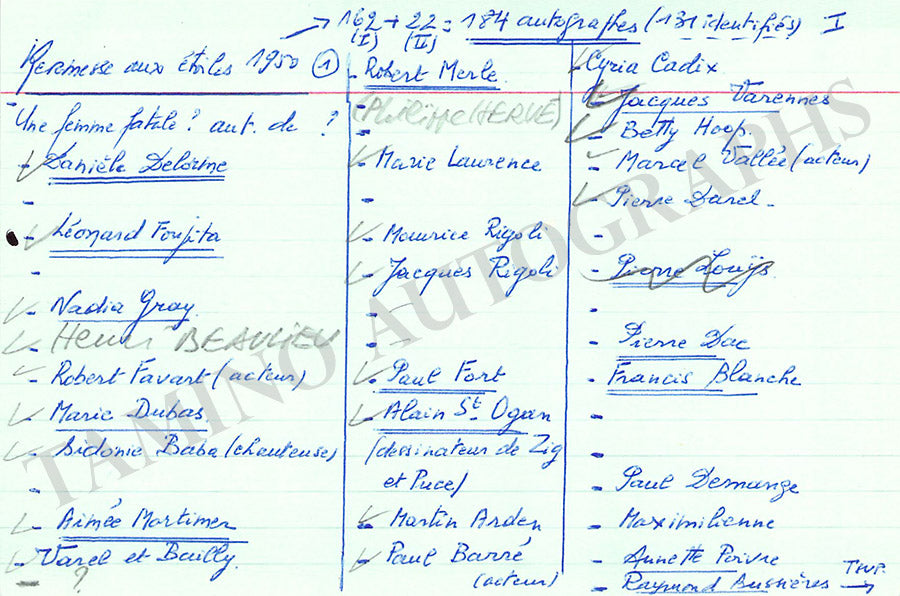 → 162 + 22 = 184 autographes (131 identifiés) I
(I) (II)
Kermesse aux étoiles 1950 ①
-
Une femme fatale? aut. de ?
- Danièle Delorme
-
- Léonard Foujita
-
- Nadia Gray
- Henri BEAULIEU
- Robert Favart (acteur)
- Marie Dubas
- Sidonie Baba (chanteuse)
-
- Aimée Mortimer
- Varel et Bailly
- ?
- Robert Merle
-
(Philippe HERVÉ)
-
- Marie Laurence
-
- Maurice Rigoli
- Jacques Rigoli
-
-
- Paul Fort
- Alain St Ogan
(dessinateur de Zig
et Puce)
- Martin Arden
- Paul Barré
(acteur)
- Cyria Cadix
- Jacques Varennes
- Betty Hoop.
- Marcel Vallée (acteur)
- Pierre Darel -
-
- Pierre Louÿs.
-
- Pierre Dac
- Francis Blanche
-
-
- Paul Demange
- Maximilienne
- Annette Poivre
- Raymond Bussières T.N.P. →
TAMINO AUTOGRAPHS